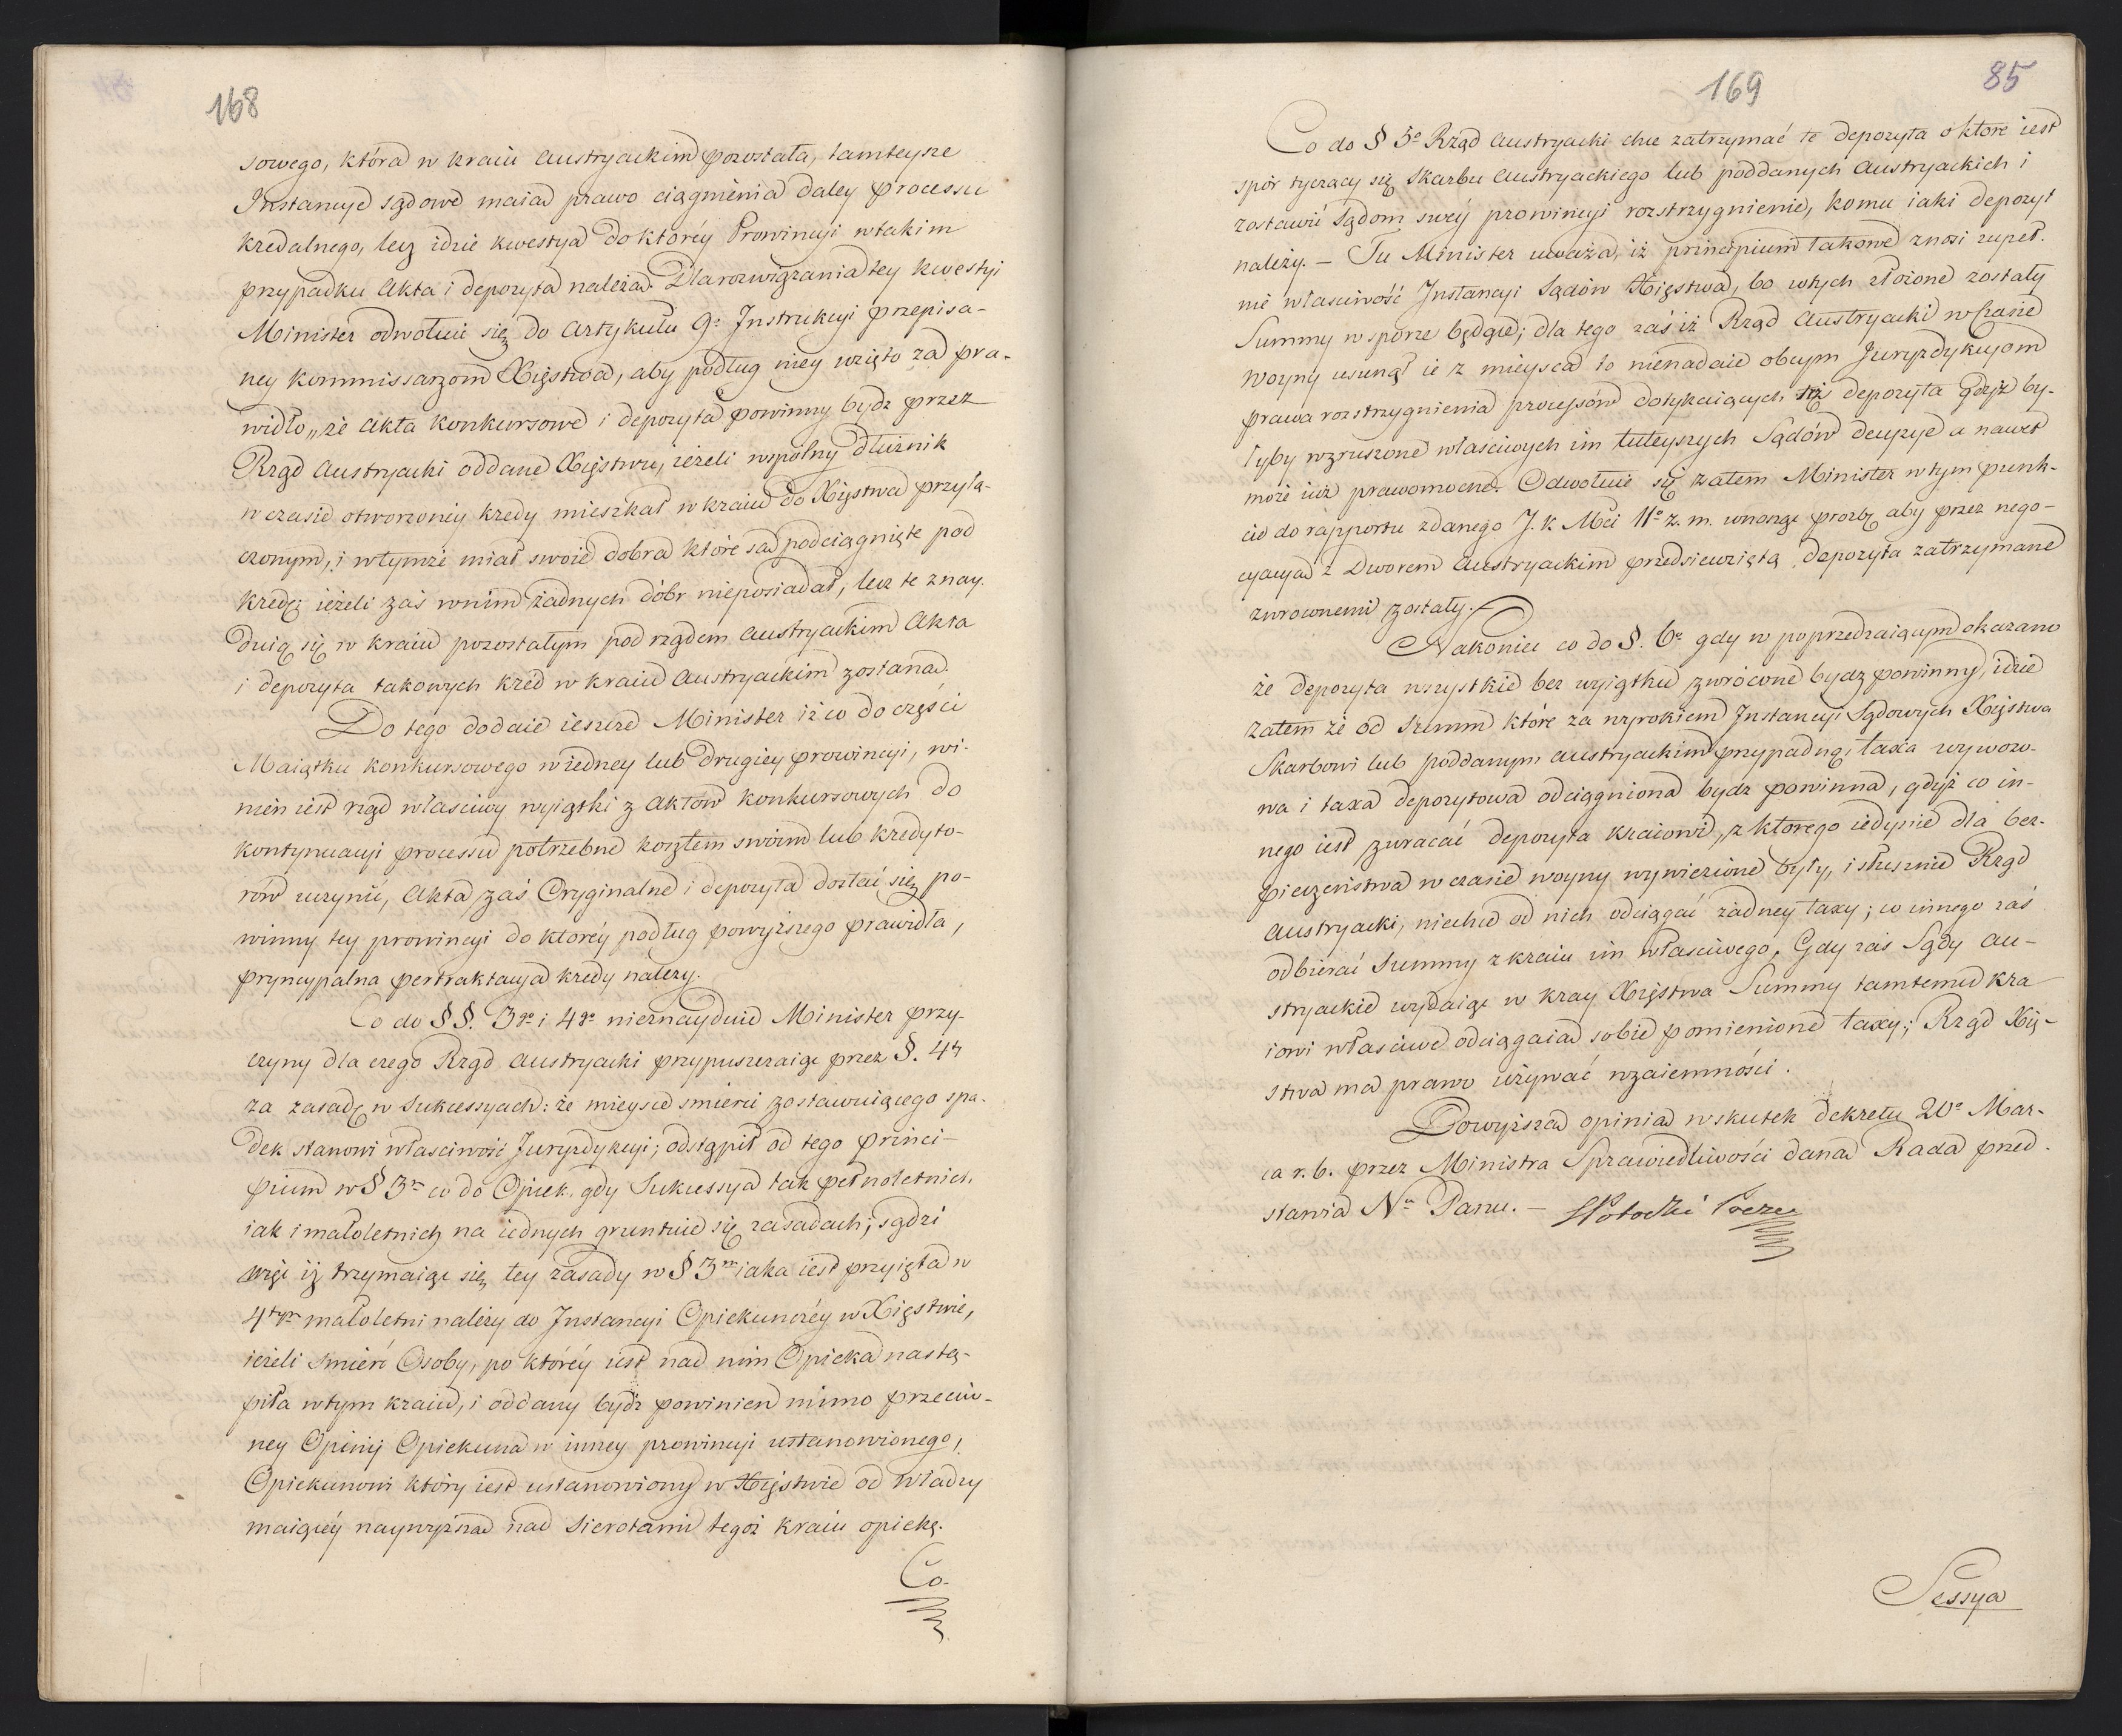 168
sowego, która w kraiu Austryackim pozostała, tamteysze
Instancye sądowe maią prawo ciągnienia daley processu
kredalnego, lecz idzie kwestya do któréy Prowincyi w takim
przypadku Akta i depozyta należą. Dla rozwiązania tey kwestyi
Minister odwołuie się do Artykułu 9º Instrukcyi przepisa-
ney Kommissarzom Xięstwa, aby podług niey wzięto za pra-
widło „że Akta konkursowe i depozyta powinny bydz przez
Rząd Austryacki oddane Xięstwu, ieżeli wspólny dłużnik
w czasie otworzoney kredy mieszkał w kraiu do Xięstwa przyłą-
czonym, i w tymże miał swoie dobra które są podciągnięte pod
kredę, ieżeli zaś w nim żadnych dóbr nieposiadał, lecz te znay-
duią się w kraiu pozostałym pod rządem Austryackim Akta
i depozyta takowych kred w kraiu Austryackim zostaną.
Do tego dodaie ieszcze Minister iż co do części
Maiątku konkursowego w iedney lub drugiéy prowincyi, wi-
nien iest rząd właściwy wyiątki z Aktów konkursowych do
kontynuacyi processu potrzebne kosztem swoim lub kredyto-
rów uczynić, Akta zaś Oryginalne i depozyta dostać się po-
winny tey prowincyi do któréy podług powyższego prawidła,
pryncypalna pertraktacya kredy należy.
Co do §§. 3go i 4go nieznayduie Minister przy-
czyny dla czego Rząd Austryacki przypuszczaiąc przez §. 4ty
za zasadę w Sukcessyach: że mieysce śmierci zostawuiącego spa-
dek stanowi właściwość Juryzdykcyi; odstąpił od tego princi-
pium w § 3m co do Opiek, gdy Sukcessya tak pełnoletnich,
iak i małoletnich na iednych gruntuie się zasadach; sądzi
więc iż trzymaiąc się tey zasady w § 3m iaka iest przyięta w
4tym małoletni należy do Instancyi Opiekunczéy w Xięstwie,
ieżeli śmierć Osoby, po któréy iest nad nim Opieka nastą-
piła w tym kraiu, i oddany bydź powinien mimo przeciw-
ney Opinij Opiekuna w inney prowincyi ustanowionego,
Opiekunowi który iest ustanowiony w Xięstwie od władzy
maiącéy naywyższą nad Sierotami tegoż kraiu opiekę.
Co
169
85
Co do § 5º Rząd Austryacki chce zatrzymać te depozyta o które iest
spór tyczący się Skarbu Austryackiego lub poddanych Austryackich i
zostawić Sądom swéy prowincyi rozstrzygnienie, komu iaki depozyt
należy. – Tu Minister uważa, iż principium takowe znosi zupeł-
nie właściwość Instancyi Sądów Xięstwa, bo w tych złożone zostały
Summy w sporze będące; dla tego zaś iż Rząd Austryacki w czasie
woyny usunął ie z mieysca to nienadaie obcym Juryzdykcyom
prawa rozstrzygnienia processów dotykaiących się depozyta gdyż by-
łyby wzruszone właściwych im tuteyszych Sądów decyzye a nawet
może iuż prawomocne. Odwołuie się zatem Minister w tym punk-
cie do rapportu zdanego J. K. Mci 11º z. m. wnosząc prośbę aby przez nego-
cyacyą z Dworem Austryackim przedsiewziętą, depozyta zatrzymane
zwroconemi zostały.
Nakoniec co do §. 6º gdy w poprzedzaiącym okazano
że depozyta wszystkie bez wyiątku zwrócone bydz powinny, idzie
zatem że od Summ które za wyrokiem Instancyi Sądowych Xięstwa
Skarbowi lub poddanym Austryackim przypadną, taxa wywozo-
wa i taxa depozytowa odciągniona bydz powinna, gdyż co in-
nego iest zwracać depozyta kraiowi, z którego iedynie dla bez-
pieczeństwa w czasie woyny wywiezione były, i słusznie Rząd
Austryacki, niechce od nich odciągać żadney taxy; co innego zaś
odbierać Summy z kraiu im właściwego, Gdy zaś Sądy Au-
stryackie wydaiąc w kray Xięstwa Summy tamtemu kra-
iowi właściwe odciągaią sobie pomienione taxy; Rząd Xię-
stwa ma prawo używać wzaiemności.
Powyższą opinią w skutek dekretu 20º Mar-
ca r. b. przez Ministra Sprawiedliwości daną Rada przed-
stawia Nu Panu. – SPotocki Prezes
Sessya